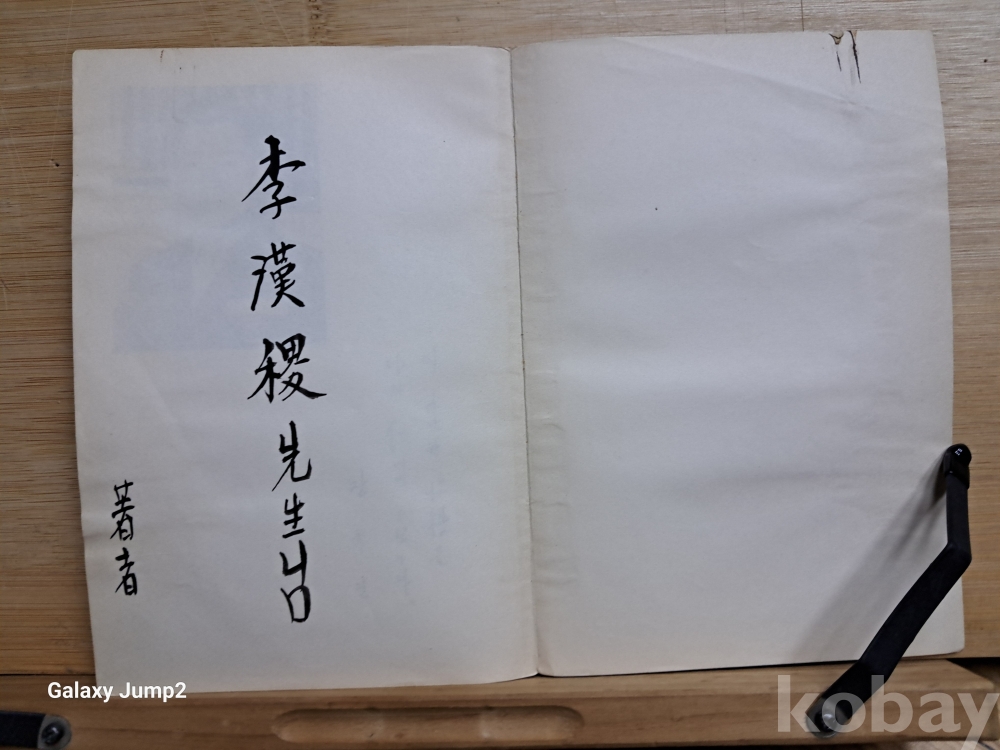 李漢稷先生
著者
Galaxy Jump2
kobay